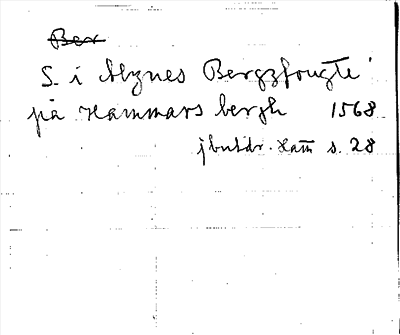 Ber
S. i Mynes Bergzfougte
på Hammars bergh 1568
jbutdr. Ham s. 28